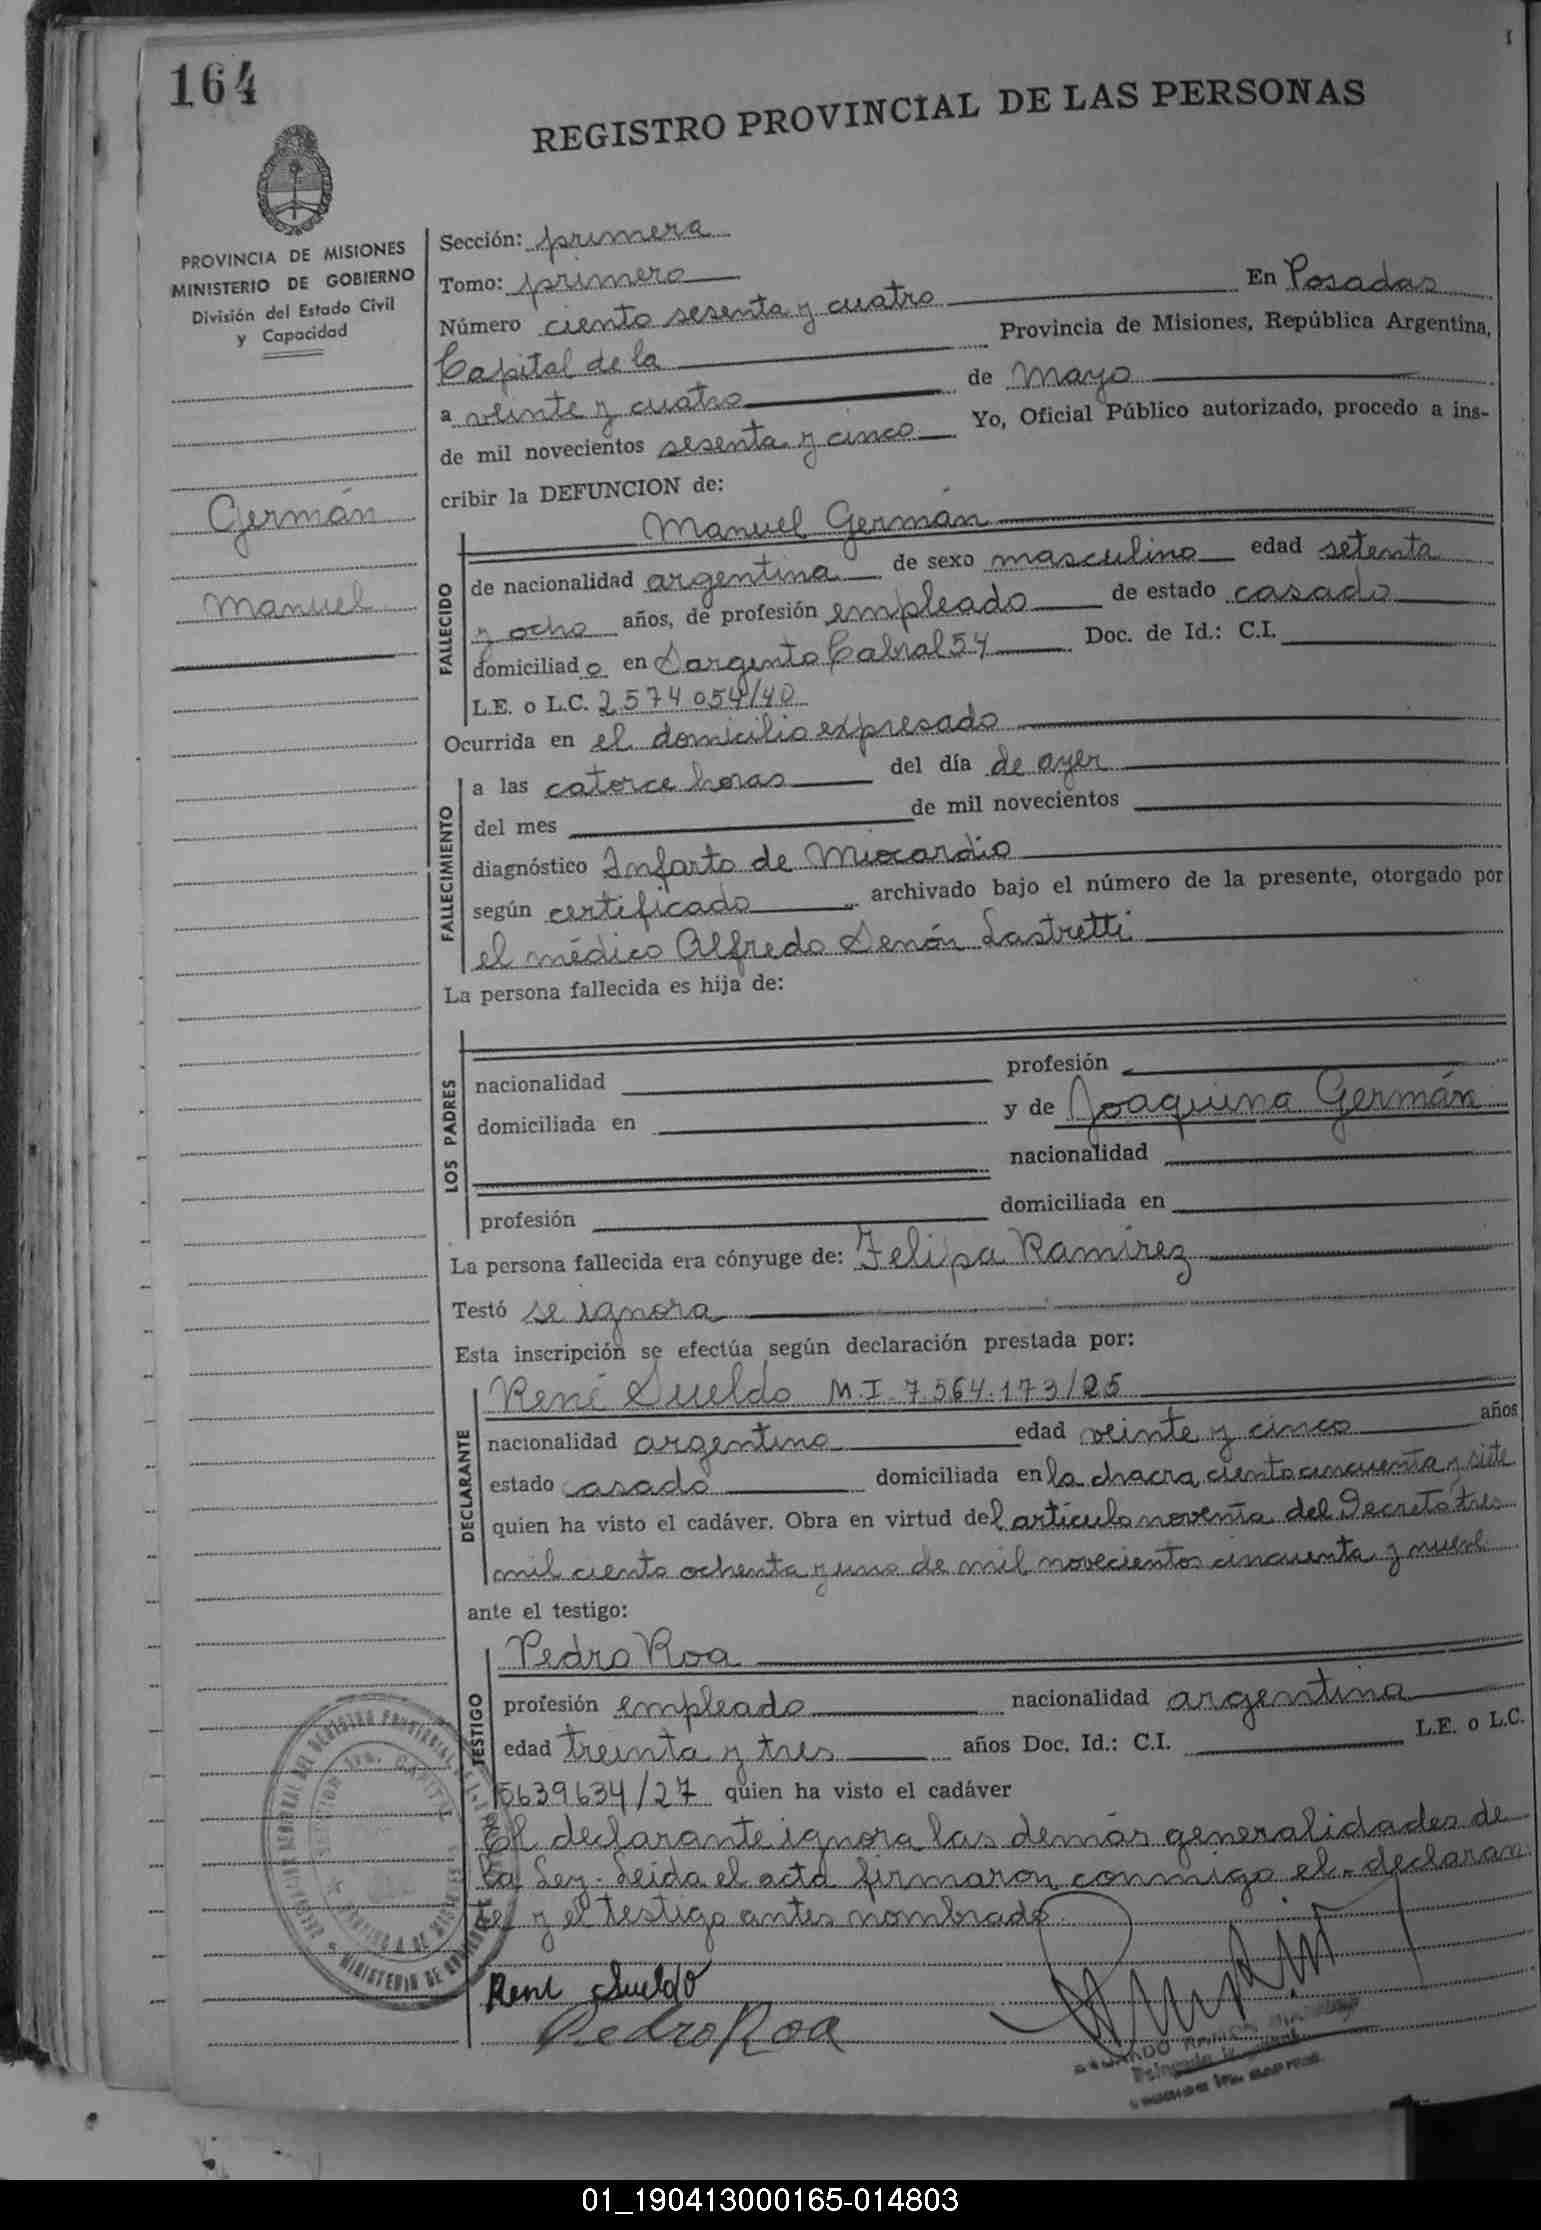 164
REGISTRO PROVINCIAL DE LAS PERSONAS
PROVINCIA DE MISIONES
MINISTERIO DE GOBIERNO
División del Estado Civil
y Capacidad
Germán
Manuel
Sección: primera
Tomo: primero
Número ciento sesenta y cuatro En Posadas
Capital de la Provincia de Misiones, República Argentina,
a veinte y cuatro de mayo
de mil novecientos sesenta y cinco Yo, Oficial Público autorizado, procedo a ins-
cribir la DEFUNCION de:
Manuel Germán
FALLECIDO
de nacionalidad argentina de sexo masculino edad setenta
y ocho años, de profesión empleado de estado casado
domiciliado en Sargento Cabral 54 Doc. de Id.: C.I.
L.E. o L.C. 2574054/40
Ocurrida en el domicilio expresado
FALLECIMIENTO
a las catorce horas del día de ayer
del mes de mil novecientos
diagnóstico Infarto de Miocardio
según certificado archivado bajo el número de la presente, otorgado por
el médico Alfredo Senón Lastretti
La persona fallecida es hija de:
LOS PADRES
nacionalidad profesión
domiciliada en y de Joaquina Germán
nacionalidad
profesión domiciliada en
La persona fallecida era cónyuge de: Felipa Ramirez
Testó se ignora
Esta inscripción se efectúa según declaración prestada por:
DECLARANTE
René Sueldo M.I. 7.564.173/25
nacionalidad argentino edad veinte y cinco años
estado casado domiciliada en la chacra ciento cincuenta y siete
quien ha visto el cadáver. Obra en virtud del artículo noventa del Decreto tres
mil ciento ochenta y uno de mil novecientos cincuenta y nueve
ante el testigo:
TESTIGO
Pedro Roa
profesión empleado nacionalidad argentina
edad treinta y tres años Doc. Id.: C.I. L.E. o L.C.
5639634/27 quien ha visto el cadáver
El declarante ignora las demás generalidades de
la Ley. Leida el acta firmaron conmigo el declaran
te y el testigo antes nombrado.
René Sueldo
Pedro Roa
01_190413000165-014803